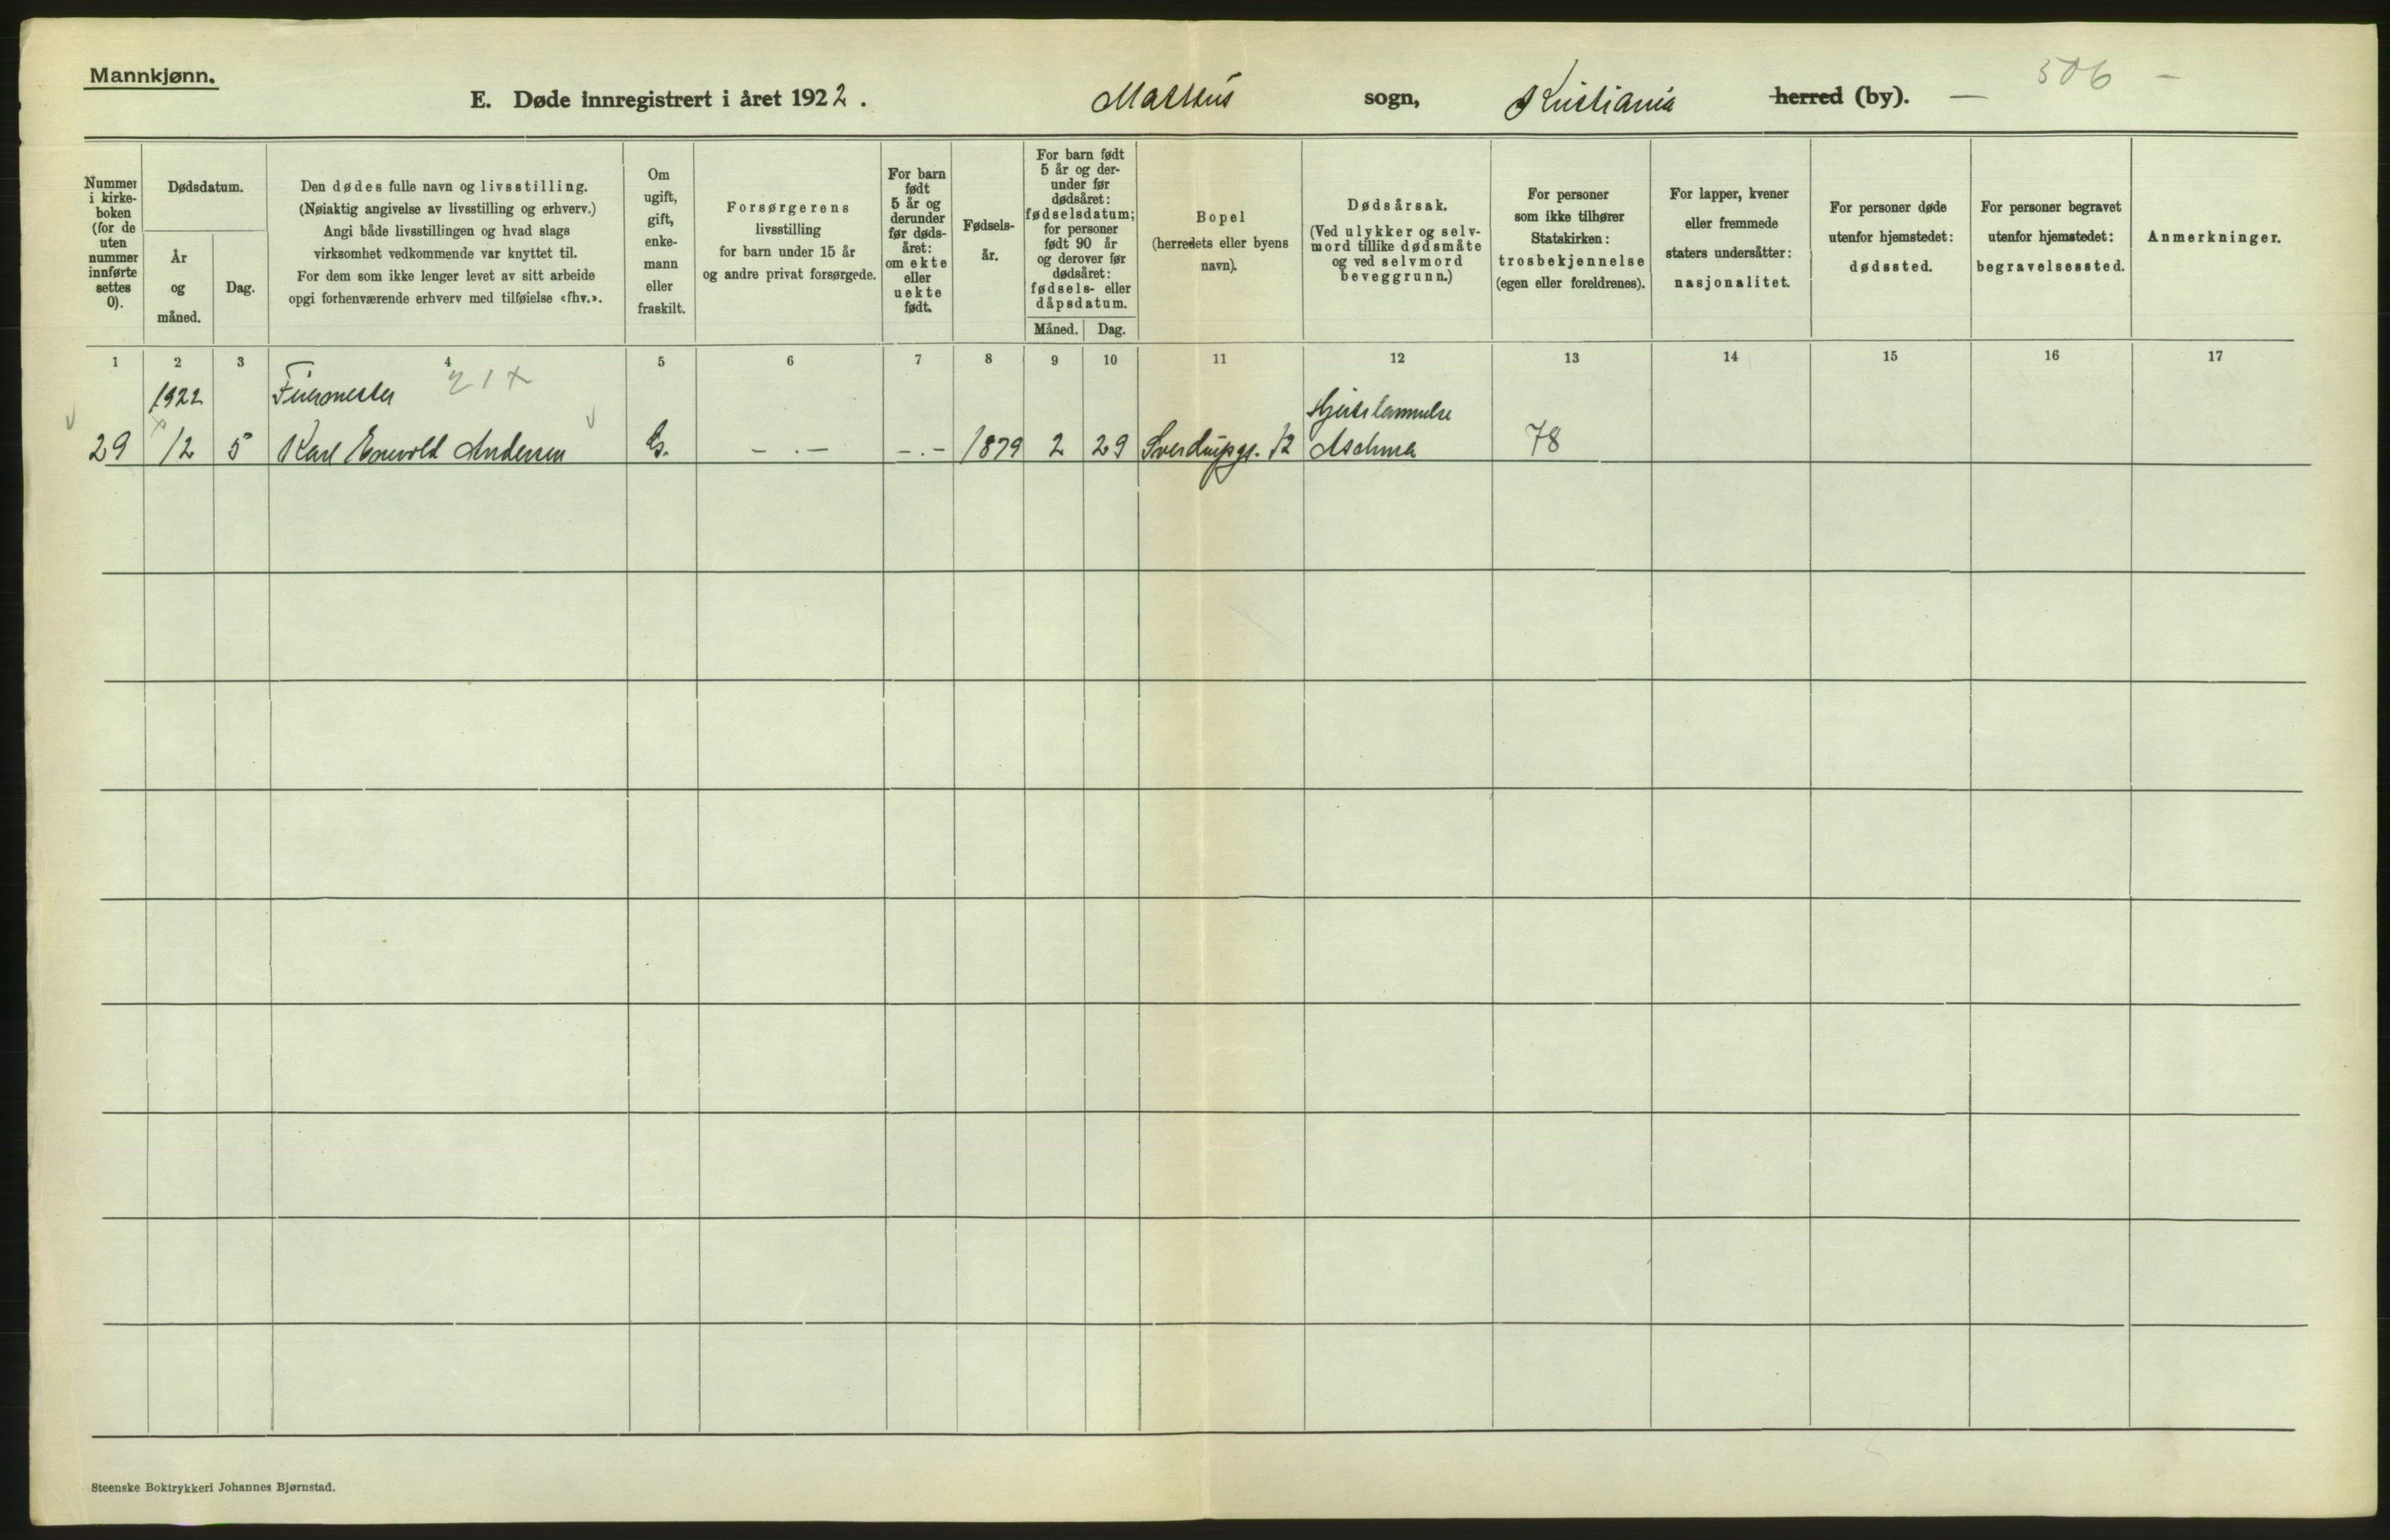 Mannkjønn.
E. Døde innregistrert i året 1922. Matteus sogn, Kristiania herred (by). — 506 —
Nummer i kirke-boken (for de uten nummer innførte settes 0).
Dødsdatum.
År og måned.
Dag.
Den dødes fulle navn og livsstilling.
(Nøiaktig angivelse av livsstilling og erhverv.)
Angi både livsstillingen og hvad slags
virksomhet vedkommende var knyttet til.
For dem som ikke lenger levet av sitt arbeide
opgi forhenværende erhverv med tilføielse «fhv.».
Om
ugift,
gift,
enke-
mann
eller
fraskilt.
Forsørgerens
livsstilling
for barn under 15 år
og andre privat forsørgede.
For barn
født
5 år og
derunder
før døds-
året:
om ekte
eller
uekte
født.
Fødsels-
år.
For barn født
5 år og der-
under før
dødsåret:
fødselsdatum;
for personer
født 90 år
og derover før
dødsåret:
fødsels- eller
dåpsdatum.
Måned. Dag.
Bopel
(herredets eller byens
navn).
Dødsårsak.
(Ved ulykker og selv-
mord tillike dødsmåte
og ved selvmord
beveggrunn.)
For personer
som ikke tilhører
Statskirken:
trosbekjennelse
(egen eller foreldrenes).
For lapper, kvener
eller fremmede
staters undersåtter:
nasjonalitet.
For personer døde
utenfor hjemstedet:
dødssted.
For personer begravet
utenfor hjemstedet:
begravelsessted.
Anmerkninger.
1 2 3 4 5 6 7 8 9 10 11 12 13 14 15 16 17
1922 Feiermester 21 x Hjertelammelse
29 12 5 Karl Enevold Andersen G. — . — — . — 1879 2 29 Sverdrupgt. 12 Asthma 78
Steenske Boktrykkeri Johannes Bjørnstad.